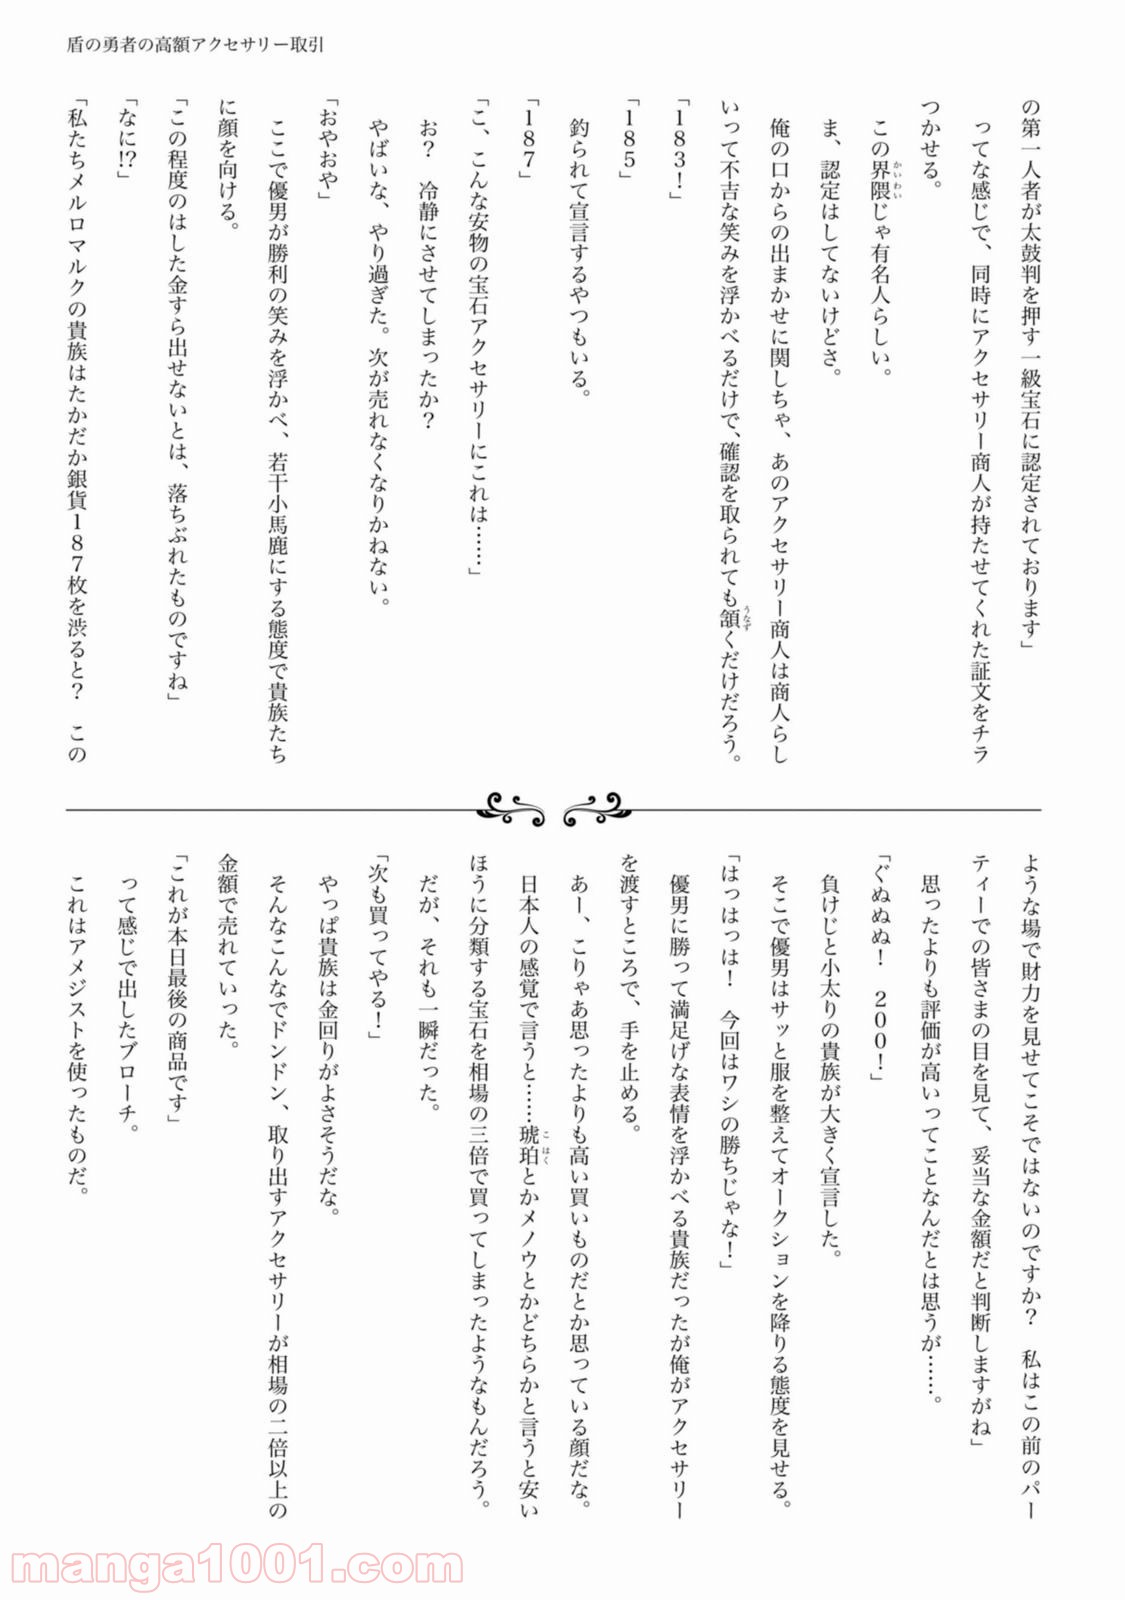 盾の勇者の高額アクセサリー取引
の第一人者が太鼓判を押す一級宝石に認定されております」
ってな感じで、同時にアクセサリー商人が持たせてくれた証文をチラ
つかせる。
この界隈じゃ有名人らしい。
かいわい
ま、認定はしてないけどさ。
俺の口からの出まかせに関しちゃ、あのアクセサリー商人は商人らし
いって不吉な笑みを浮かべるだけで、確認を取られても頷くだけだろう。
うなず
「183！」
「185」
釣られて宣言するやつもいる。
「187」
「こ、こんな安物の宝石アクセサリーにこれは……」
お？　冷静にさせてしまったか？
やばいな、やり過ぎた。次が売れなくなりかねない。
「おやおや」
ここで優男が勝利の笑みを浮かべ、若干小馬鹿にする態度で貴族たち
に顔を向ける。
「この程度のはした金すら出せないとは、落ちぶれたものですね」
「なに!?」
「私たちメルロマルクの貴族はたかだか銀貨187枚を渋ると？　この
ような場で財力を見せてこそではないのですか？　私はこの前のパー
ティーでの皆さまの目を見て、妥当な金額だと判断しますがね」
思ったよりも評価が高いってことなんだとは思うが……。
「ぐぬぬぬ！　200！」
負けじと小太りの貴族が大きく宣言した。
そこで優男はサッと服を整えてオークションを降りる態度を見せる。
「はっはっは！　今回はワシの勝ちじゃな！」
優男に勝って満足げな表情を浮かべる貴族だったが俺がアクセサリー
を渡すところで、手を止める。
あー、こりゃあ思ったよりも高い買いものだとか思っている顔だな。
日本人の感覚で言うと……琥珀とかメノウとかどちらかと言うと安い
こはく
ほうに分類する宝石を相場の三倍で買ってしまったようなもんだろう。
だが、それも一瞬だった。
「次も買ってやる！」
やっぱ貴族は金回りがよさそうだな。
そんなこんなでドンドン、取り出すアクセサリーが相場の二倍以上の
金額で売れていった。
「これが本日最後の商品です」
って感じで出したブローチ。
これはアメジストを使ったものだ。
manga1001.com